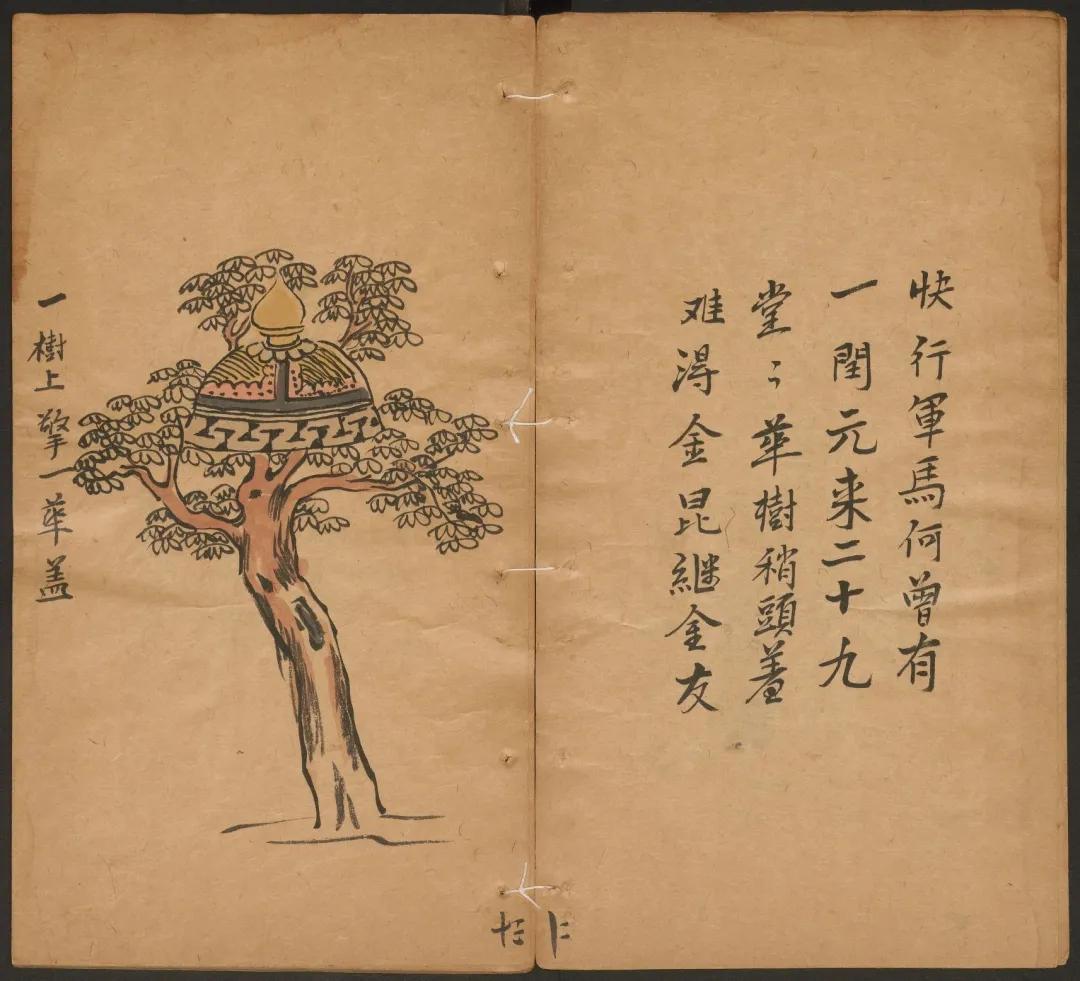 快行軍馬何曾有
一閏元来二十九
堂〻華樹稍頭羞
难得金昆継金友
一樹上擎一華盖